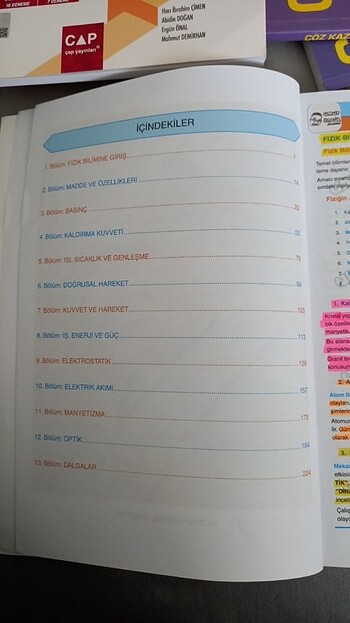 16 DENEME
7 DENEME
CAP
çap yayınları
Hacı İbrahim ÇİMEN
Abidin DOĞAN
Ergün ÖNAL
Mahmut DEMİRHAN
ÇÖZ KAZ
İÇİNDEKİLER
1. Bölüm: FİZİK BİLİMİNE GİRİŞ 7
2. Bölüm: MADDE VE ÖZELLİKLERİ 14
3. Bölüm: BASINÇ
4. Bölüm: KALDIRMA KUVVETİ
5. Bölüm: ISI, SICAKLIK VE GENLEŞME
6. Bölüm: DOĞRUSAL HAREKET 94
7. Bölüm: KUVVET VE HAREKET 103
8. Bölüm: İŞ, ENERJİ VE GÜÇ 113
9. Bölüm: ELEKTROSTATİK 139
10. Bölüm: ELEKTRİK AKIMI 157
11. Bölüm: MANYETİZMA 175
12. Bölüm: OPTİK 184
13. Bölüm: DALGALAR 224
FİZİK Bİ
Fizik Bili
Temel bilimler
Fiziğin
1. Kat
Kristal yap
bik özellik
manyetik,
Bu alana
girmekte
Granit
konusun
2. A
Atom f
olayları,
şimlerin
Atomun
lir. Gün
olarak
3.
Mekan
etkisin
TİK",
"DİNA
incele
Çalış
olayd